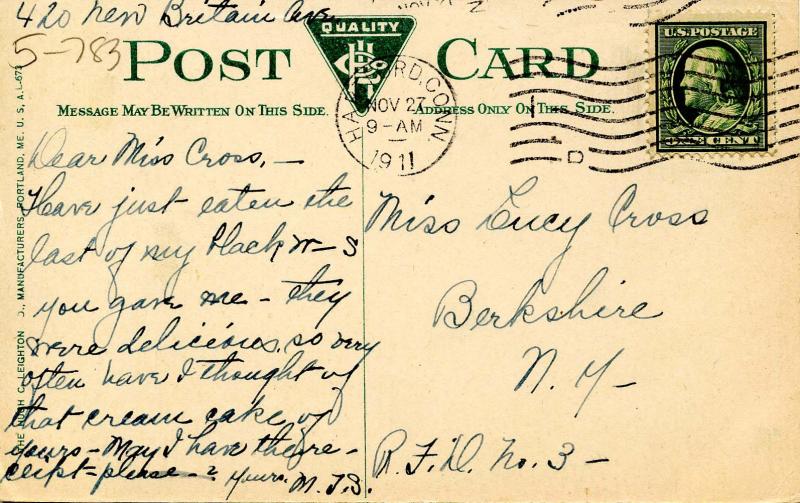 420 New Britain Ave
5-783
POST CARD
QUALITY
MESSAGE MAY BE WRITTEN ON THIS SIDE.
ADDRESS ONLY ON THIS SIDE.
HARTFORD, CONN.
NOV 27
9-AM
1911
D
U.S. POSTAGE
ONE CENT
Dear Miss Cross,-
Have just eaten the
last of my black w-s
you gave me - they
were delicious, so very
often have I thought of
that cream cake of
yours - May I have the re-
ceipt - please - ? Yours. M.J.S.
Miss Lucy Cross
Berkshire
N. Y-
R.F.D. No. 3-
THE HUGH C. LEIGHTON CO., MANUFACTURERS, PORTLAND, ME. U. S. A.